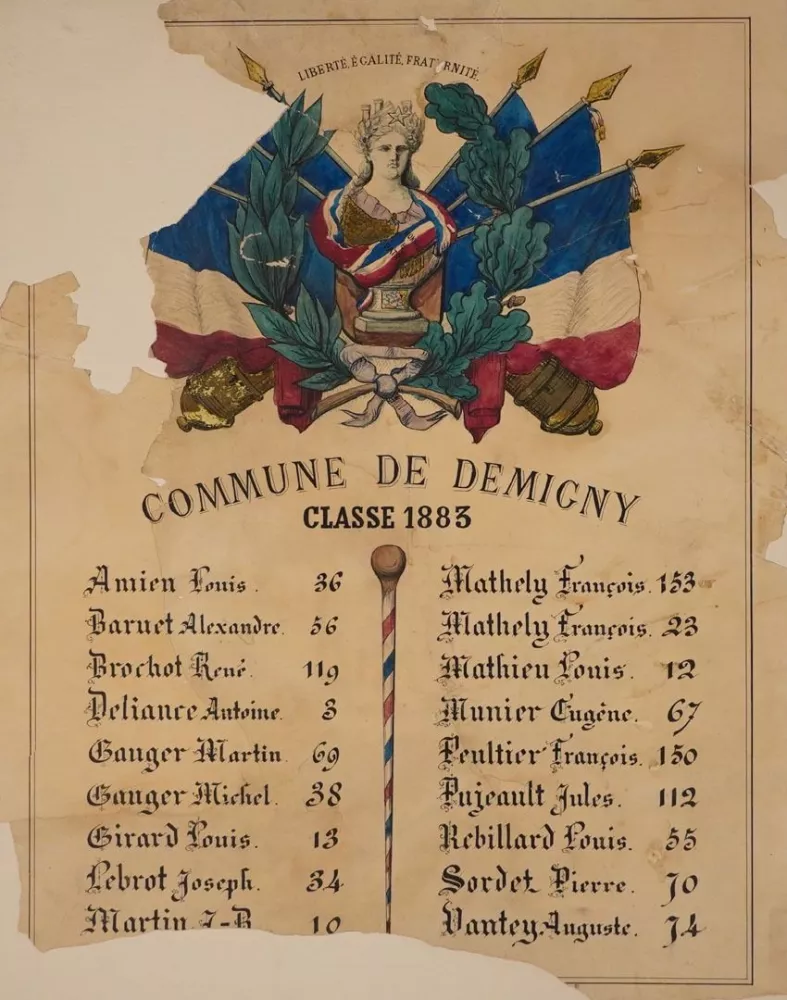 LIBERTÉ, ÉGALITÉ, FRATERNITÉ.
COMMUNE DE DEMIGNY
CLASSE 1883
Amien Louis. 36
Baruet Alexandre. 56
Brochot René. 119
Deliance Antoine. 3
Ganger Martin. 69
Ganger Michel. 38
Girard Louis. 13
Lebrot Joseph. 34
Martin J-B 10
Mathely François. 153
Mathely François. 23
Mathieu Louis. 12
Munier Eugène. 67
Peultier François. 150
Pujeault Jules. 112
Rebillard Louis. 55
Sordet Pierre. 70
Vantey Auguste. 74